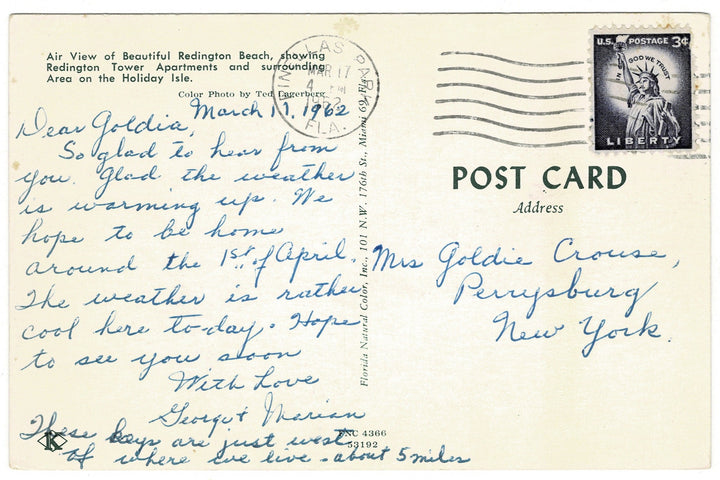 Air View of Beautiful Redington Beach, showing
Redington Tower Apartments and surrounding
Area on the Holiday Isle.
Color Photo by Ted Lagerberg
March 17, 1962
Dear Goldia,
So glad to hear from
you. Glad the weather
is warming up. We
hope to be home
around the 1st. of April.
The weather is rather
cool here to-day. Hope
to see you soon
With Love
George & Marian
These keys are just west
of where we live - about 5 miles
K
FNC 4366
53192
Florida Natural Color, Inc., 101 N.W. 176th St., Miami 69, Fla.
PINELLAS PARK
MAR 17
4 PM
1962
FLA.
U.S. POSTAGE 3¢
IN GOD WE TRUST
LIBERTY
POST CARD
Address
Mrs Goldie Crouse,
Perrysburg
New York.